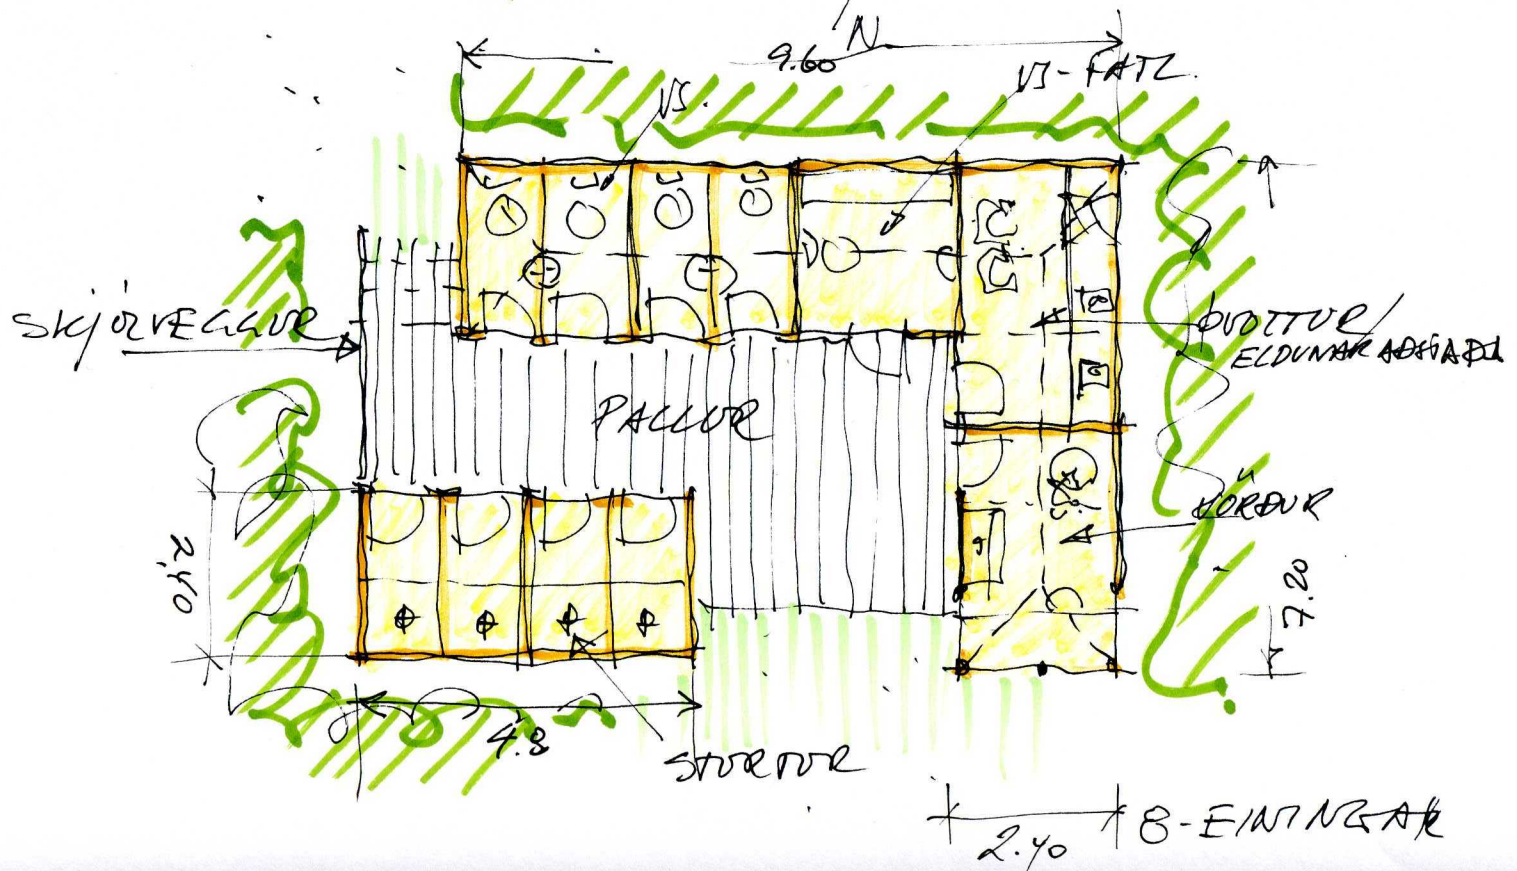 N
9.60
VS-FATL.
VS.
SKJÓLVEGGUR
ÞVOTTUR/
ELDUNARAÐSTAÐA
PALLUR
VÖRÐUR
2,40
7.20
4.8
STURTUR
2.40
8-EININGAR